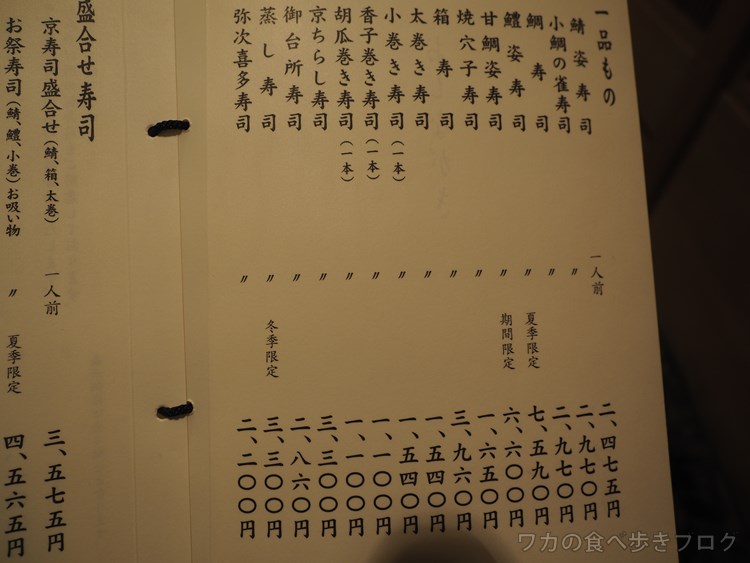 一品もの
鯖姿寿司 一人前 二、四七五円
小鯛の雀寿司 〃 二、九七〇円
鯛寿司 〃 二、九七〇円
鱧姿寿司 〃 夏季限定 七、五九〇円
甘鯛姿寿司 〃 期間限定 六、六〇〇円
焼穴子寿司 〃 一、六五〇円
箱寿司 〃 三、九六〇円
太巻き寿司 〃 一、五四〇円
小巻き寿司(一本) 〃 一、五四〇円
香子巻き寿司(一本) 〃 一、一〇〇円
胡瓜巻き寿司(一本) 〃 一、一〇〇円
京ちらし寿司 〃 三、三〇〇円
御台所寿司 〃 二、八六〇円
蒸し寿司 〃 冬季限定 三、三〇〇円
弥次喜多寿司 〃 二、二〇〇円
盛合せ寿司
京寿司盛合せ(鯖、箱、太巻) 一人前 三、五七五円
お祭寿司(鯖、鱧、小巻)お吸い物 〃 夏季限定 四、五六五円
ワカの食べ歩きブログ